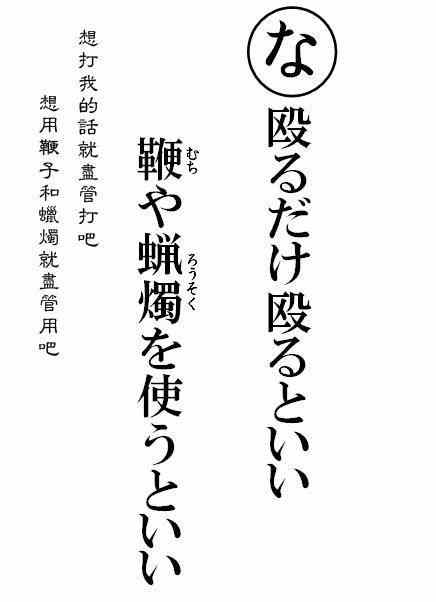 な
殴るだけ殴るといい
鞭や蝋燭を使うといい
むち
ろうそく
想打我的話就盡管打吧
想用鞭子和蠟燭就盡管用吧